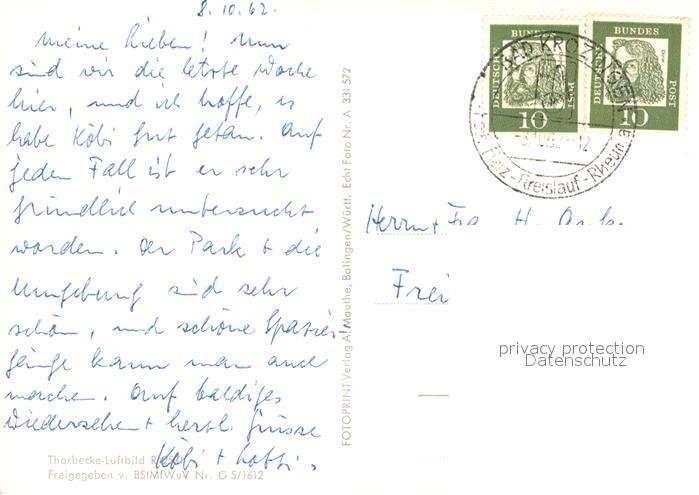 8.10.62.
Meine Lieben! Nun
sind wir die letzte Woche
hier, und ich hoffe, es
habe Köbi gut getan. Auf
jeden Fall ist er sehr
gründlich untersucht
worden. Der Park + die
Umgebung sind sehr
schön, und schöne Spazier-
gänge kann man auch
machen. Auf baldiges
Wiedersehen + herzl. Grüsse
Köbi +
Thorbecke-Luftbild
Freigegeben v. BStMfWuV Nr. G 5/1612
FOTOPRINT Verlag A. Mauthe, Balingen/Württ. Echt Foto Nr. A 331 572
DEUTSCHE BUNDES POST
10
DEUTSCHE BUNDES POST
10
BAD KROZINGEN
Herz-Kreislauf-Rheuma
Herrn + Fr. H.
Frei
privacy protection
Datenschutz